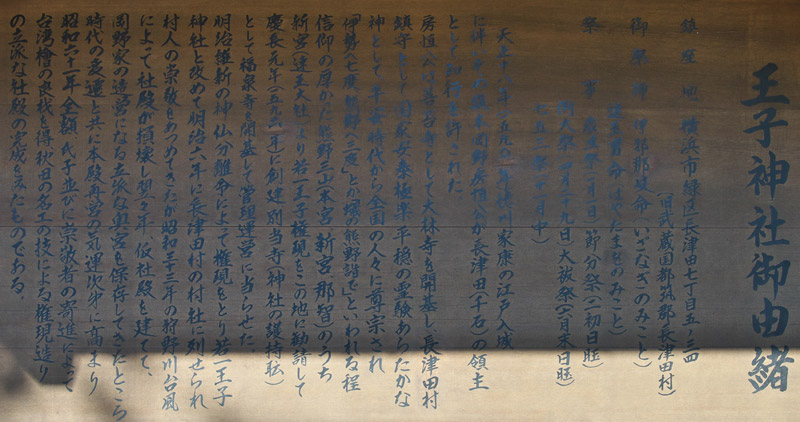 王子神社御由緒
鎮座地 横浜市緑区長津田七丁目五ノ三四
(旧武蔵国都筑郡長津田村)
御祭神 伊邪那岐命(いざなぎのみこと)
(はやたまをのみこと)
祭事 歳旦祭(一月一日)節分祭(二初日旺)
例大祭(九月十九日)大祓祭(六月末日旺)
七五三祭(十一月中)
天正十八年(一五九〇)徳川家康の江戸入城
に伴い岡野房恒公が長津田(千石)の領主
として知行を許された、
房恒公は菩提寺として大林寺を開基し、長津田村
鎮守として国家安泰極楽平穏の霊験あらたかな
神として平安時代から全国の人々に尊宗され
伊勢へ七度熊野へ三度、とか蟻の熊野詣で、といわれる程
信仰の厚かた熊野三山(本宮、新宮、那智)のうち
新宮(速玉大社)より若一王子権現をこの地に勧請して
慶長元年(一五九六年)に創建別当寺(神社の護持職)
として福泉寺を開基して管理運営に当らせた、
明治維新の神仏分離令によって権現をとり若一王子
神社と改めて明治六年に長津田村の村社に列せられ
村人の崇敬をあつめてきたが昭和三十三年の狩野川台風
によって社殿が損壊し翌々年、仮社殿を建てて、
岡野家の造営になる立派な奥宮を保存してきたところ
時代の変運と共に本殿再営の気運次第に高まり
昭和六十一年全額、氏子並びに崇敬者の寄進によって
台湾檜の良材を得秋田の名工の技による権現造り
の立派な社殿の完成をみたものである。